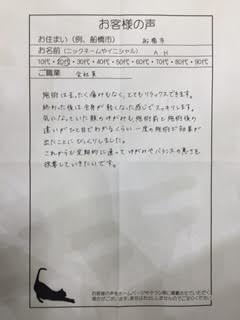 お客様の声
お住まい（例、船橋市） 船橋市
お名前（ニックネームやイニシャル） A・H
10代・20代・30代・40代・50代・60代・70代・80代・90代
ご職業 会社員
施術はまったく痛みもなく、とてもリラックスできます。
終わった後は全身が軽くなった感じでスッキリします。
気になっていた顔のゆがみも施術前と施術後の
違いがひと目でわかるくらい一度の施術で効果が
出たことにびっくりしました。
これからも定期的に通ってゆがみやバランスの悪さを
改善していきたいです。
お客様の声をホームページやチラシ等に掲載させていただく
場合がございます。